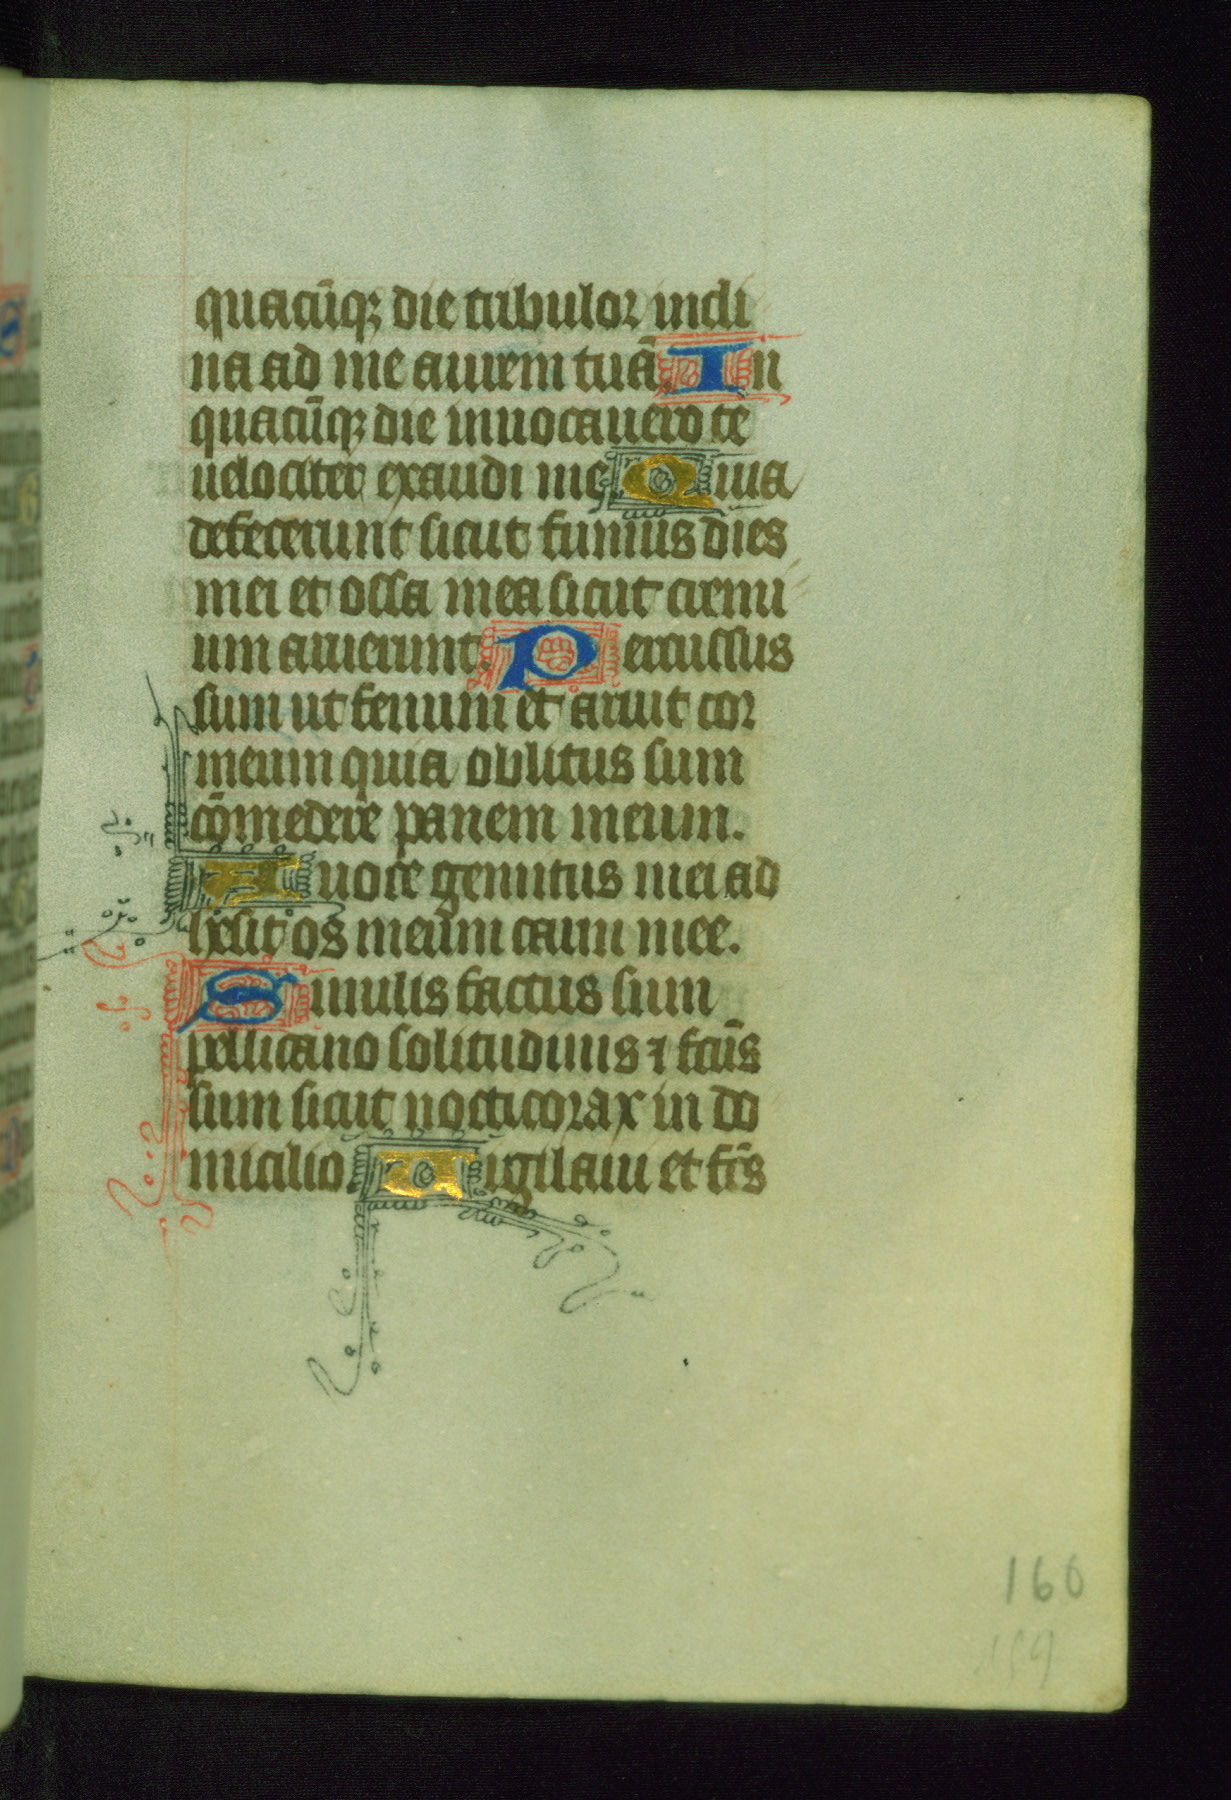 quacūqꝫ die tribulor incli
na ad me aurem tuā In
quacūqꝫ die inuocauero te
uelociter exaudi me Quia
defecerunt sicut fumus dies
mei et ossa mea sicut cremi
um aruerunt. Percussus
sum ut fenum et aruit cor
meum quia oblitus sum
cōmedere panem meum.
A uoce gemitus mei ad
hesit os meum carni mee.
Similis factus sum
pellicano solitudinis ⁊ fcūs
sum sicut nocticorax in do
micilio. Uigilaui et fcs̄
160
159